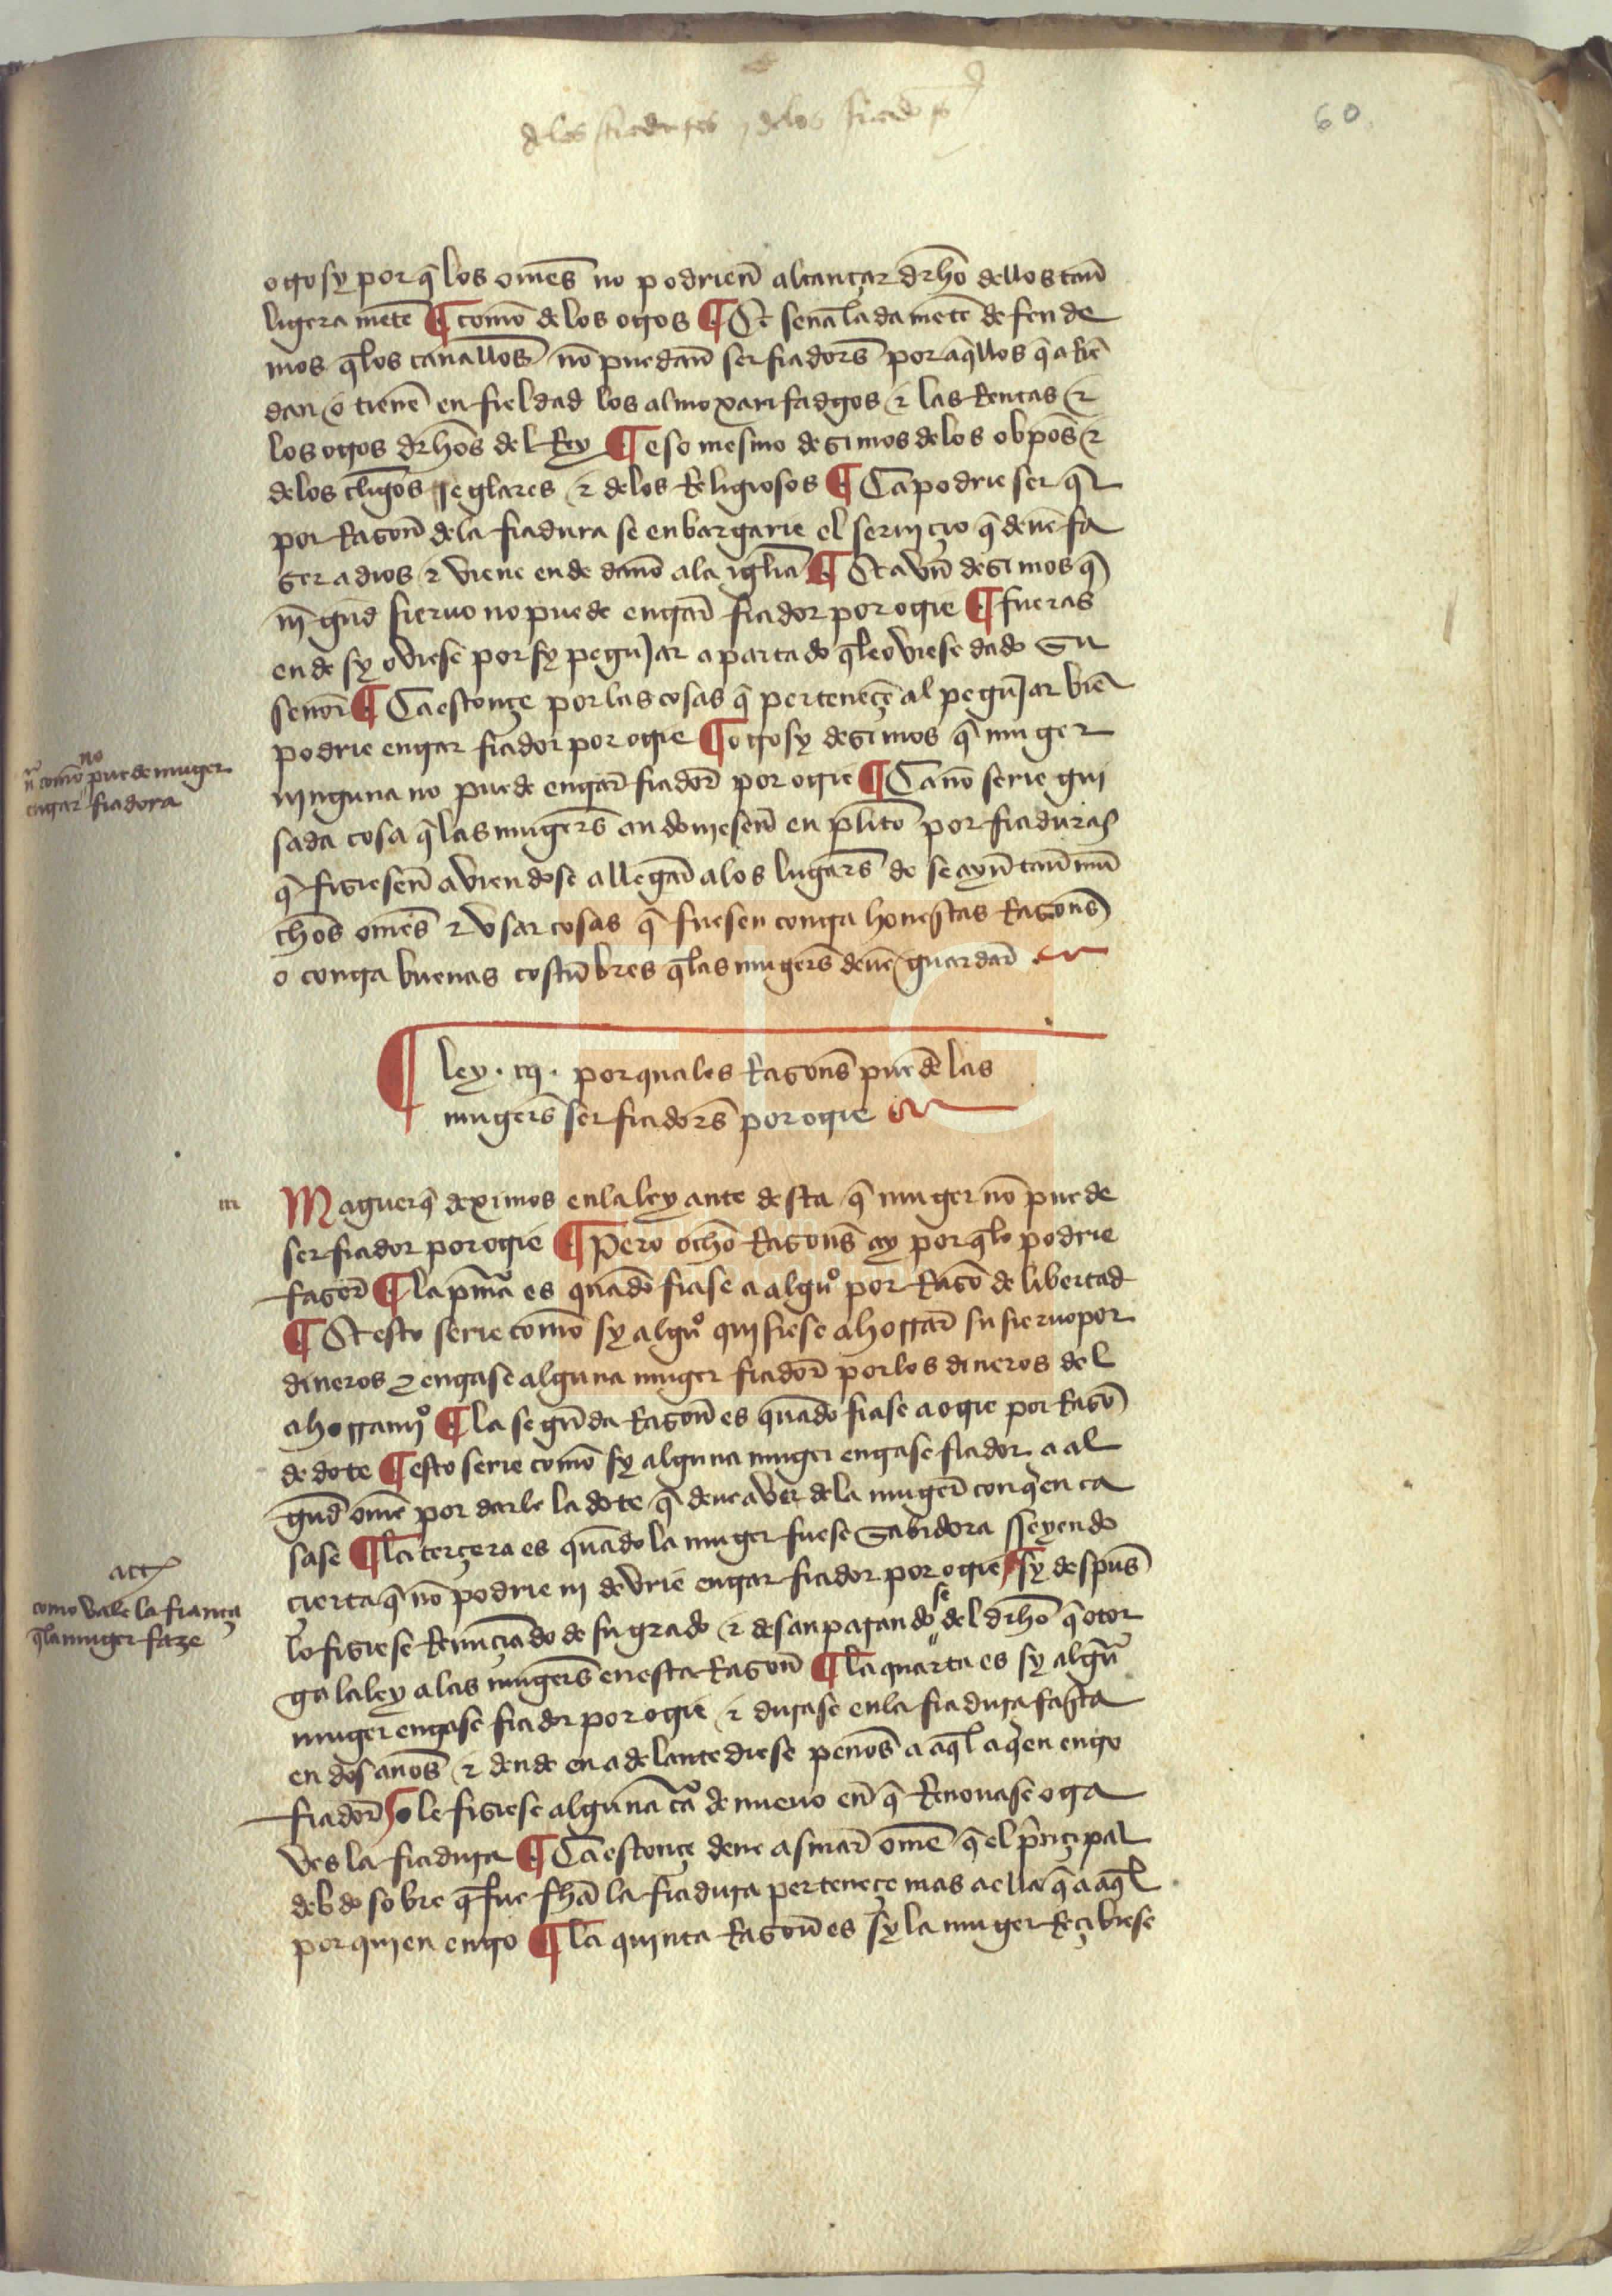 de los fiadores y delos fiados
60
otrosy por q̃ los omẽs no podrien̄ alcançar dr̃ho dellos tan̄
ligera mẽte ¶ comō de los otros ¶ Et señalada mẽte defende
mos q̃ los cauallos nō puedan̄ ser fiadors̃ por aq̃llos q̃ a Riē
dan o tienē en fieldad los almoxarifadgos ⁊ las Rentas ⁊
los otros dr̃hos del Rey ¶ eso mesmo desimos delos obpõs ⁊
delos cl̃igos seglares ⁊ delos Religiosos ¶ Ca podrie ser q̃
por Rason̄ dela fiadura se enbargarie el seruiçio q̃ deuē fa
ser a dios ⁊ viene ende dano ala igl̃ia ¶ Et avn̄ desimos q̃
nīgund sieruo no puede entrar̄ fiador por otrie ¶ fueras
ende sy oviese por sy pegujar apartado q̃ le oviese dado su
señor ¶ Ca estonçe por las cosas q̃ perteneçē al pegujar biē
podrie entrar fiador por otrie ¶ otrosy desimos q̃ muger
ninguna no puede entrar̄ fiador̄ por otrie ¶ Ca nō serie gui
sada cosa q̃ las mugers̃ andouiesen̄ en pl̃ito por fiaduras
q̃ fisiesen̄ aviendose allegar̄ alos lugars̃ do se ayun̄tan̄ mu
chos omẽs ⁊ vsar cosas q̃ fuesen contra honestas Rasons̃
o contra buenas costūbres q̃ las mugers̃ deuē guardar̄
nō como no puede muger
entrar fiadora
¶ ley . iij . por quales Rasons̃ puedē las
mugers̃ ser fiadors̃ por otrie
iii
Maguer q̃ deximos enla ley ante desta q̃ muger nō puede
ser fiador por otrie ¶ Pero ocho Rasons̃ ay por q̃ lo podrie
faser̄ ¶ la pm̃a es quãdo fiase a alguº por Rasō de libertad
¶ Et esto serie comō sy alguº quisiese ahorrar̄ su sieruo por
dineros ⁊ entrase alguna muger fiador̄ por los dineros del
ahorramjº ¶ la segūda Rason̄ es quãdo fiase a otrie por Rasō
de dote ¶ esto serie comō sy alguna muger entrase fiador a al
gund omē por darle la dote q̃ deue aver dela muger̄ con q̃en ca
sase ¶ la terçera es quãdo la muger fuese sabidora sseyendo
çierta q̃ nō podrie ni devrie entrar fiador por otrie sy despus̃
lo fisiese Renūçiãdo de su grado ⁊ desanparando se del dr̃ho q̃ otor
ga la ley alas mugers̃ en esta Rason̄ ¶ la quarta es sy algũa
muger entrase fiador por otrie ⁊ durase enla fiadura fasta
en dos años ⁊ dende en adelante diese peños a aq̃l a q̃en entro
fiador̄ o le fisiese alguna cãº de nueuo en̄ q̃ Renouase otra
ves la fiadura ¶ Ca estonçe deue asmar̄ omē q̃ el pr̃inçipal
debdo sobre q̃ fue fh̃a la fiadura perteneçe mas a ella q̃ a aq̃l
por quien entro ¶ la quinta Rason̄ es sy la muger Reçibiese
como vale la fiança
q̃ la muger faze